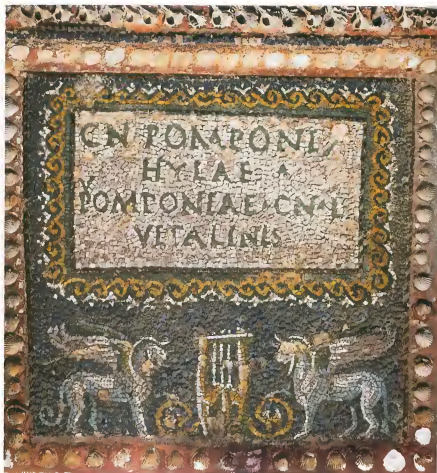 CN POMPONI
HYLAE
V
POMPONIAE · CN · L
VITALINIS